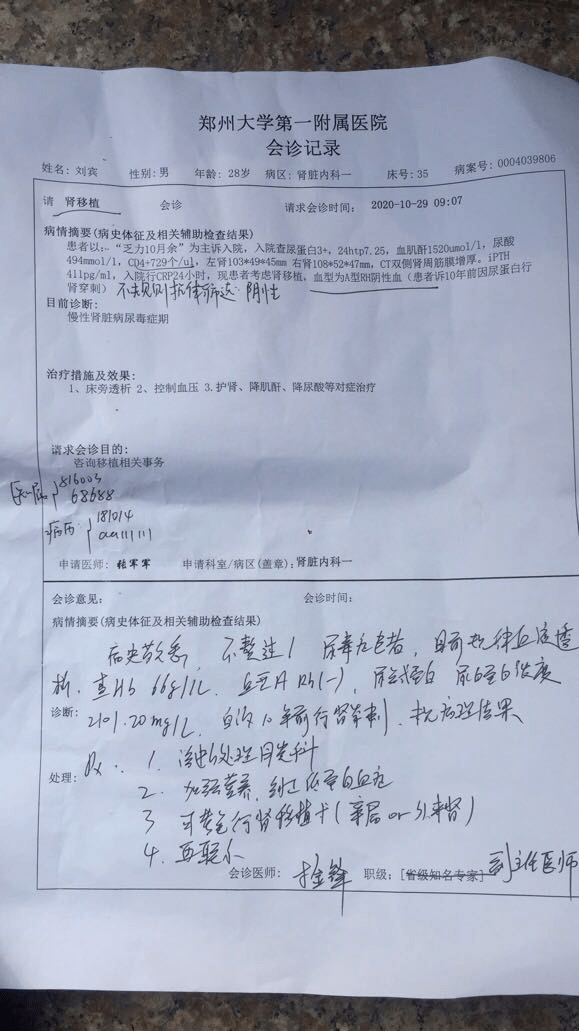 郑州大学第一附属医院
会诊记录
姓名: 刘宾 性别: 男 年龄: 28岁 病区: 肾脏内科一 床号: 35 病案号: 0004039806
请 肾移植 会诊 请求会诊时间: 2020-10-29 09:07
病情摘要(病史体征及相关辅助检查结果)
患者以:“乏力10月余”为主诉入院, 入院查尿蛋白3+, 24htp7.25, 血肌酐1520umol/l, 尿酸
494mmol/l, CD4+729个/ul, 左肾103*49*45mm 右肾108*52*47mm, CT双侧肾周筋膜增厚。iPTH
411pg/ml, 入院行CRP24小时, 现患者考虑肾移植, 血型为A型RH阴性血 (患者诉10年前因尿蛋白行
肾穿刺) 不规则抗体筛选 阴性
目前诊断:
慢性肾脏病尿毒症期
治疗措施及效果:
1、床旁透析 2、控制血压 3.护肾、降肌酐、降尿酸等对症治疗
请求会诊目的:
咨询移植相关事务
816003
68688
病历: 181014
aa111111
申请医师: 张军军 申请科室/病区(盖章): 肾脏内科一
会诊意见: 会诊时间:
病情摘要(病史体征及相关辅助检查结果)
病史敬悉, 尿毒症患者, 目前规律血液透
析, 查Hb 66g/L. 血型A Rh(-), 尿白蛋白浓度
诊断: 2101.20mg/L, 自诉10年前行肾穿刺,
1. 处理同贵科
处理: 2. 加强营养, 纠正低蛋白血症
3 可考虑行肾移植术(亲属or外来肾)
4.
会诊医师: 职级: [省级知名专家] 副主任医师